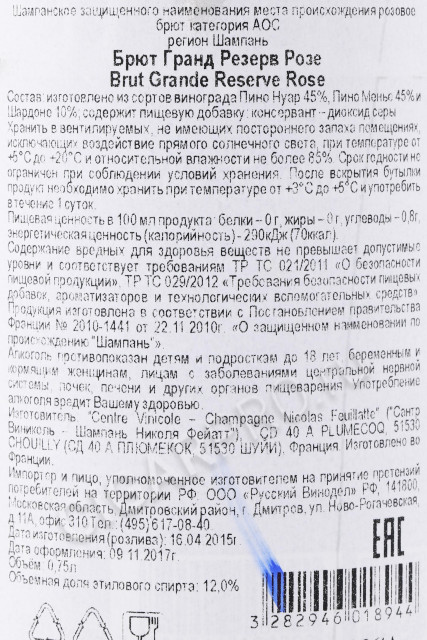 Шампанское защищенного наименования места происхождения розовое
брют категория АОС
регион Шампань
Брют Гранд Резерв Розе
Brut Grande Reserve Rose
Состав: изготовлено из сортов винограда Пино Нуар 45%, Пино Менье 45% и
Шардоне 10%; содержит пищевую добавку: консервант - диоксид серы
Хранить в вентилируемых, не имеющих постороннего запаха помещениях,
исключающих воздействие прямого солнечного света, при температуре от
+5°С до +20°С и относительной влажности не более 85%. Срок годности не
ограничен при соблюдении условий хранения. После вскрытия бутылки
продукт необходимо хранить при температуре от +3°С до +5°С и употребить
в течение 1 суток.
Пищевая ценность в 100 мл продукта: белки – 0 г, жиры – 0 г, углеводы – 0,8г,
энергетическая ценность (калорийность) - 290кДж (70ккал).
Содержание вредных для здоровья веществ не превышает допустимые
уровни и соответствует требованиям ТР ТС 021/2011 «О безопасности
пищевой продукции», ТР ТС 029/2012 «Требования безопасности пищевых
добавок, ароматизаторов и технологических вспомогательных средств»
Продукция изготовлена в соответствии с Постановлением правительства
Франции № 2010-1441 от 22.11.2010г. «О защищенном наименовании по
происхождению "Шампань"».
Алкоголь противопоказан детям и подросткам до 18 лет, беременным и
кормящим женщинам, лицам с заболеваниями центральной нервной
системы, почек, печени и других органов пищеварения. Употребление
алкоголя вредит Вашему здоровью.
Изготовитель: "Centre Vinicole – Champagne Nicolas Feuillatte" ("Сантр
Виниколь - Шампань Николя Фейатт"), CD 40 A PLUMECOQ, 51530
CHOUILLY (СД 40 А ПЛЮМЕКОК, 51530 ШУЙИ), Франция. Изготовлено во
Франции.
Импортер и лицо, уполномоченное изготовителем на принятие претензий
потребителей на территории РФ: ООО «Русский Винодел» РФ, 141800,
Московская область, Дмитровский район, г. Дмитров, ул. Ново-Рогачевская,
д.11А, офис 310 Тел.: (495) 617-08-40
Дата изготовления (розлива): 16.04.2015г.
Дата оформления: 09.11.2017г.
Объем: 0,75л
Объемная доля этилового спирта: 12,0%
EAC
3 282946 018944